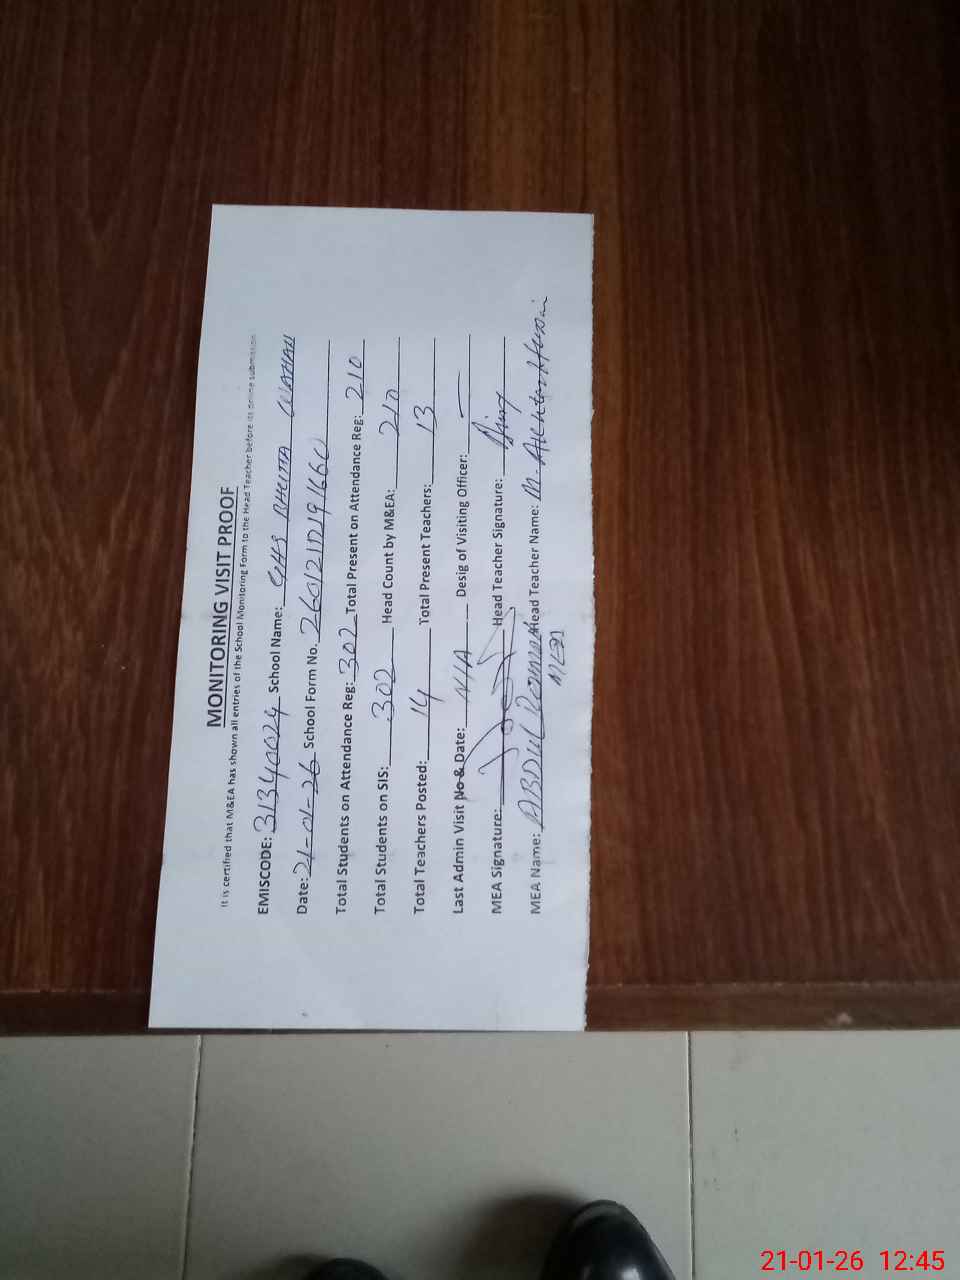 MONITORING VISIT PROOF
It is certified that M&EA has shown all entries of the School Monitoring Form to the Head Teacher before its online submission
EMISCODE: 31340024 School Name: GHS BHUTTA
Date: 21-01-26 School Form No.
Total Students on Attendance Reg: 302 Total Present on Attendance Reg: 210
Total Students on SIS: 302 Head Count by M&EA: 210
Total Teachers Posted: 14 Total Present Teachers: 13
Last Admin Visit No & Date: N/A Desig of Visiting Officer: —
MEA Signature: Head Teacher Signature:
MEA Name: ABDUL REHMAN Head Teacher Name: M. Akhtar Hussain
21-01-26 12:45